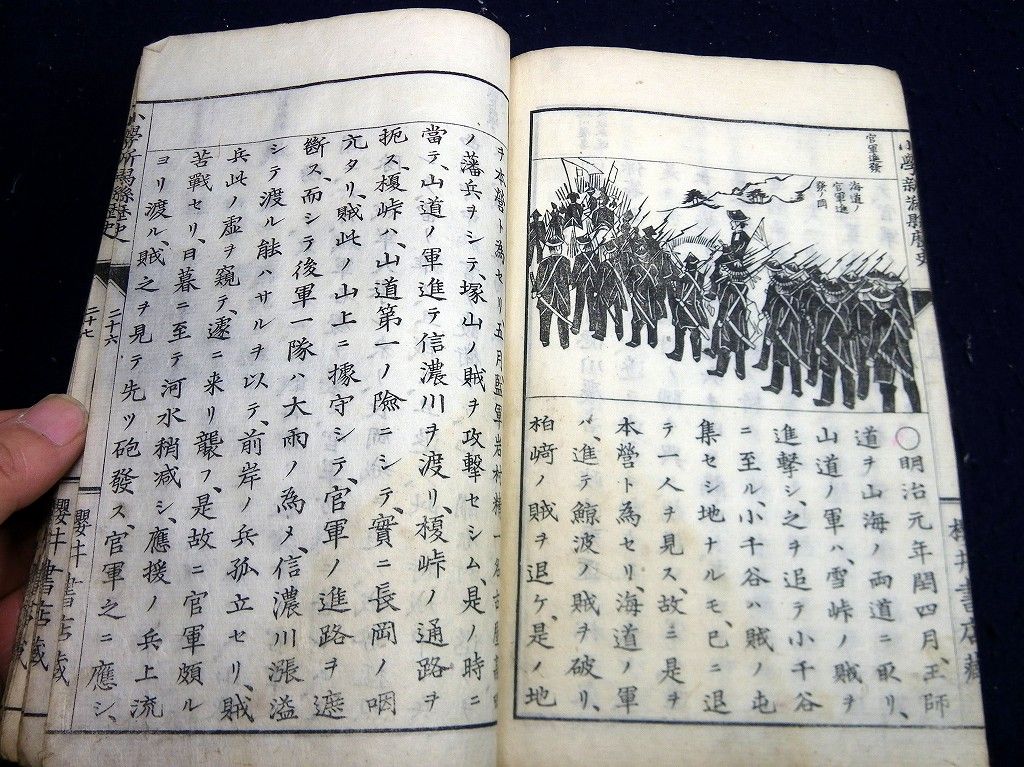 官軍進發
海道ノ
官軍進
發ノ圖
〇明治元年閏四月、王師
道ヲ山海ノ両道ニ取リ、
山道ノ軍ハ、雪峠ノ賊ヲ
進撃シ、之ヲ追テ小千谷
ニ至ル、小千谷ハ賊ノ屯
集セシ地ナルモ、已ニ退
テ一人ヲ見ス、故ニ是ヲ
本營ト為セリ、海道ノ軍
ハ、進テ鯨波ノ賊ヲ破リ、
柏﨑ノ賊ヲ退ケ、是ノ地
ヲ本營ト為セリ、五月監軍岩村
ノ藩兵ヲシテ、塚山ノ賊ヲ攻撃セシム、是ノ時ニ
當テ、山道ノ軍進テ信濃川ヲ渡リ、榎峠ノ通路ヲ
扼ス、榎峠ハ、山道第一ノ險ニシテ、實ニ長岡ノ咽
亢タリ、賊此ノ山上ニ據守シテ、官軍ノ進路ヲ遮
斷ス、而シテ後軍一隊ハ大雨ノ為メ、信濃川漲溢
シテ渡ル能ハサルヲ以テ、前岸ノ兵孤立セリ、賊
兵此ノ虚ヲ窺テ、遽ニ来リ襲フ、是故ニ官軍頗ル
苦戰セリ、日暮ニ至テ河水稍減シ、應援ノ兵上流
ヨリ渡ル、賊之ヲ見テ先ツ砲發ス、官軍之ニ應シ、
二十六
櫻井書店藏
二十七